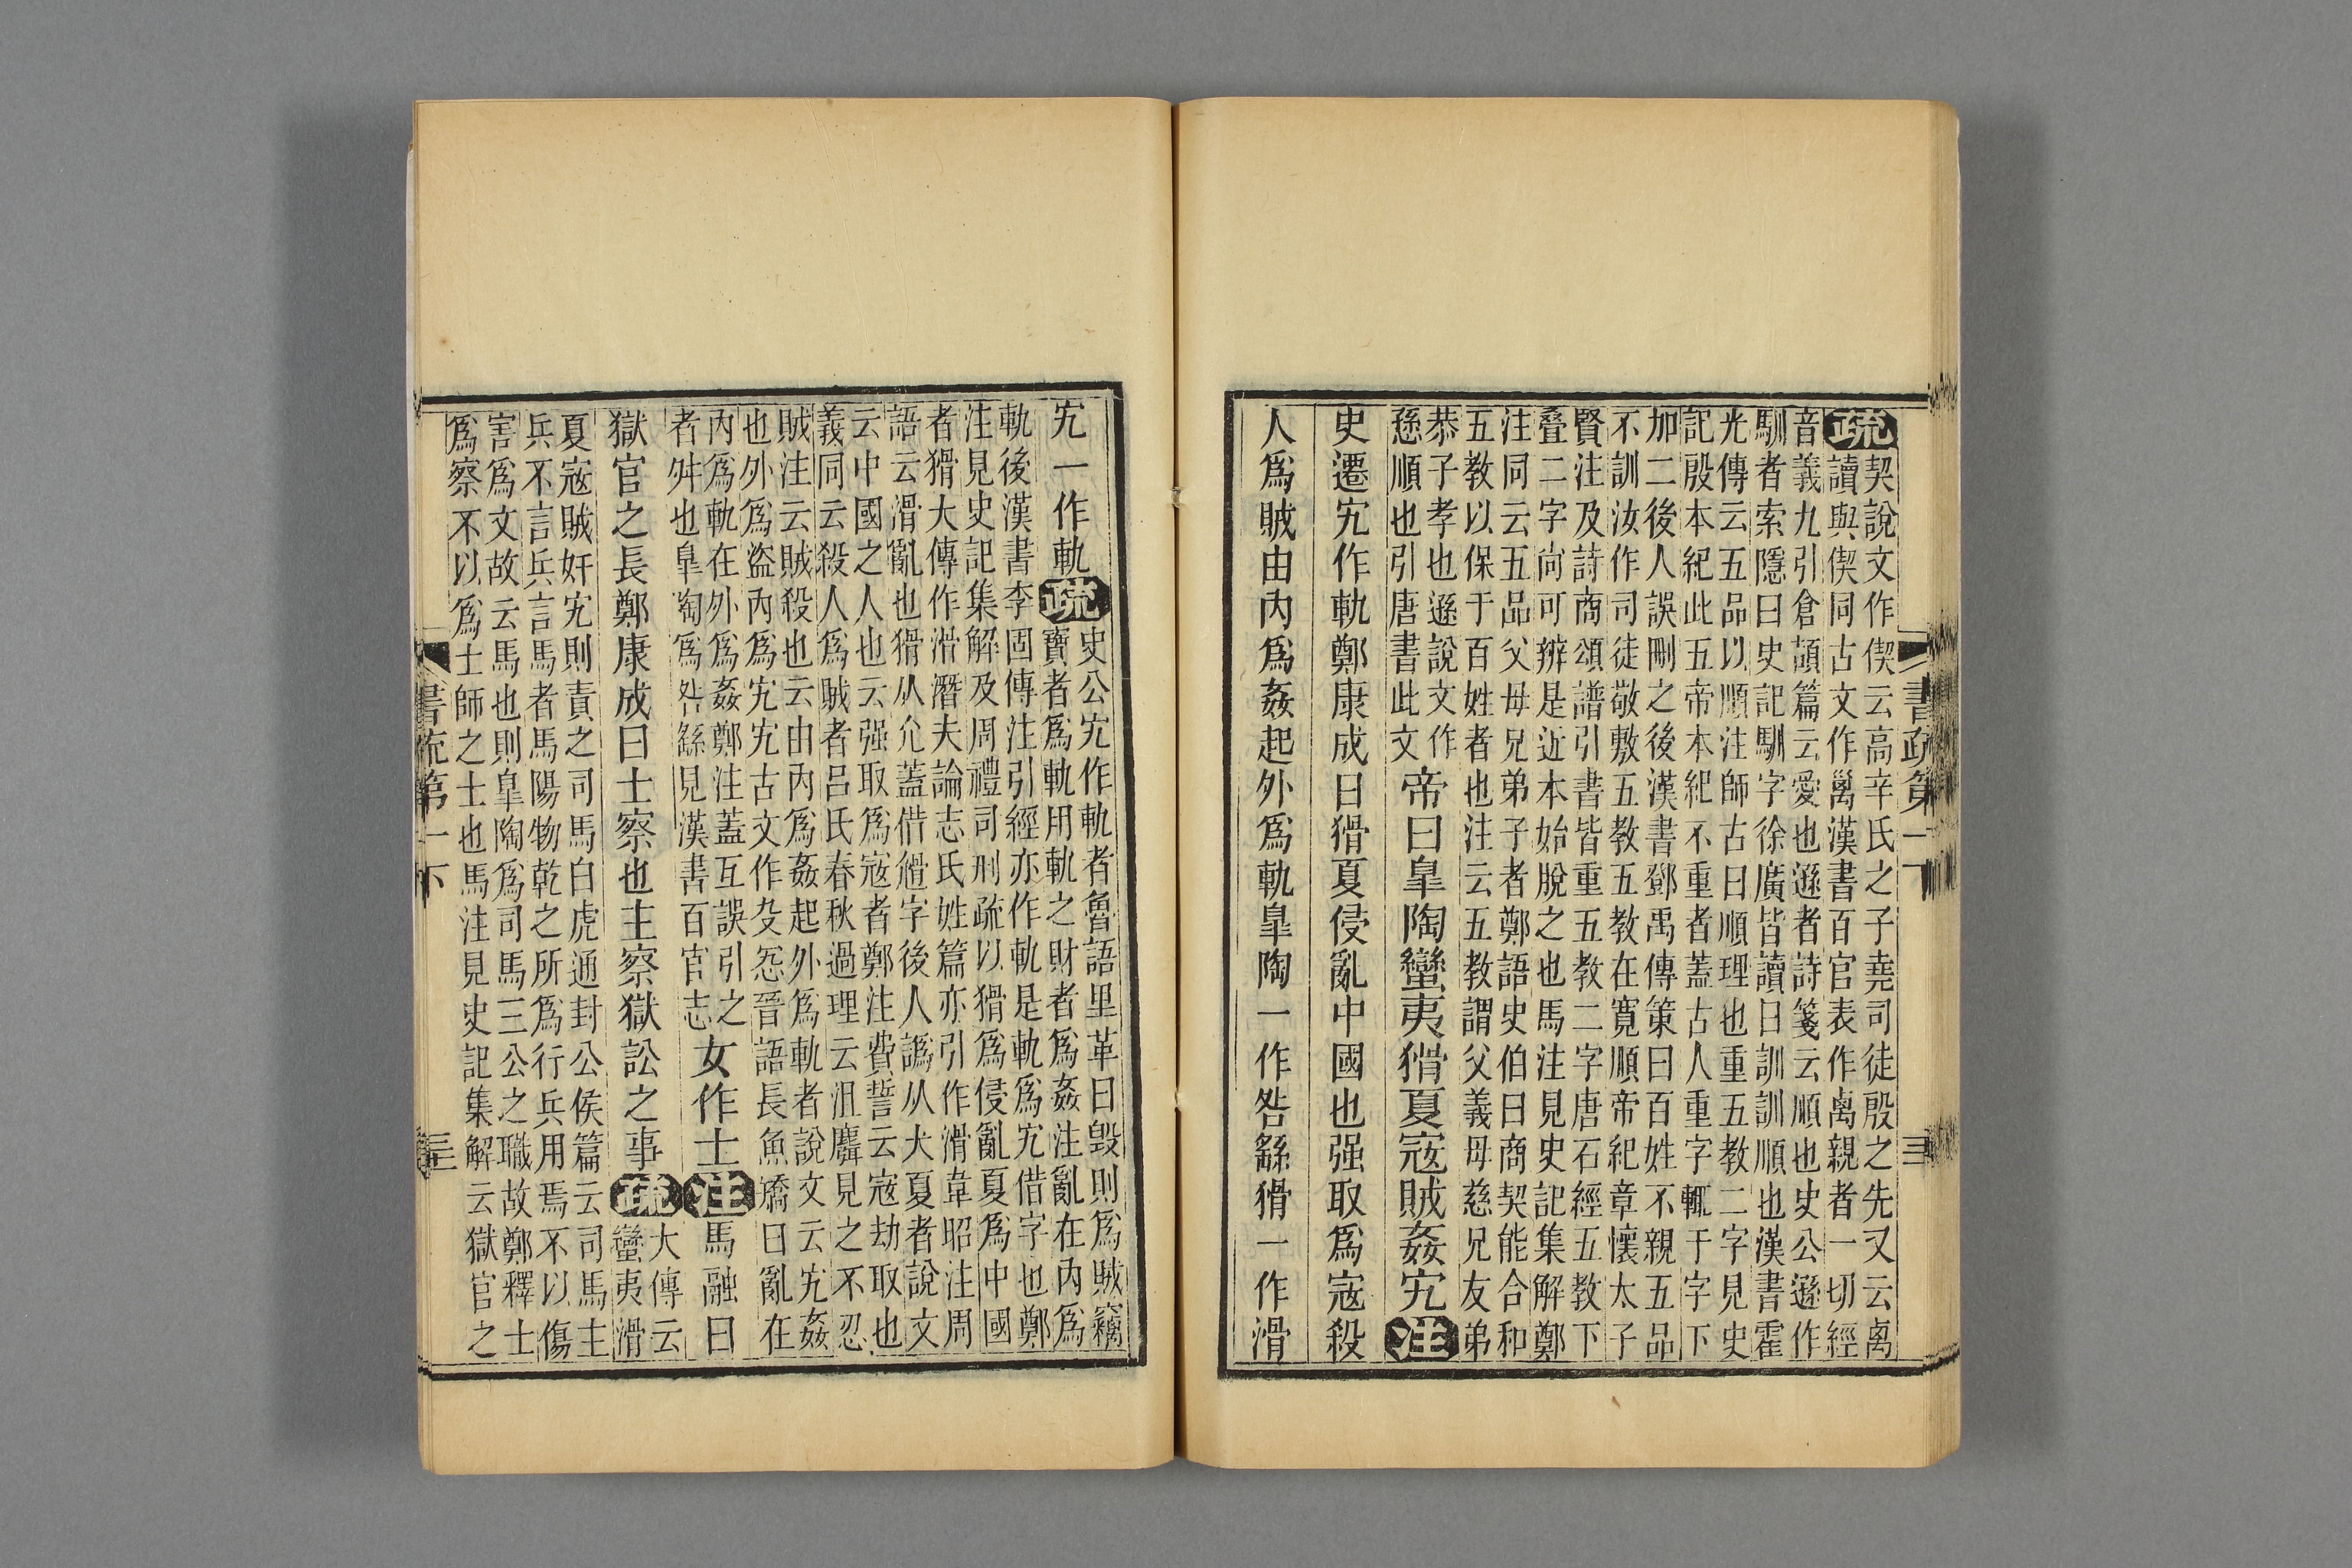 疏
契說文作偰云高辛氏之子堯司徒殷之先又云离
讀與偰同古文作𥜿漢書百官表作离親者一切經
音義九引倉頡篇云愛也遜者詩箋云順也史公遜作
馴者索隱曰史記馴字徐廣皆讀曰訓訓順也漢書霍
光傳云五品以順注師古曰順理也重五教二字見史
記殷本紀此五帝本紀不重者蓋古人重字輒于字下
加二後人誤刪之後漢書鄧禹傳策曰百姓不親五品
不訓汝作司徒敬敷五教五教在寬順帝紀章懷太子
賢注及詩商頌譜引書皆重五教二字唐石經五教下
疊二字尚可辨是近本始脫之也馬注見史記集解鄭
注同云五品父母兄弟子者鄭語史伯曰商契能合和
五教以保于百姓者也注云五教謂父義母慈兄友弟
恭子孝也遜說文作
愻順也引唐書此文
帝曰皐陶蠻夷猾夏寇賊姦宄注
史遷宄作軌鄭康成曰猾夏侵亂中國也强取爲寇殺
人爲賊由內爲姦起外爲軌皐陶一作咎繇猾一作滑
書疏第一下
三
宄一作軌疏
史公宄作軌者魯語里革曰毀則爲賊竊
寶者爲軌用軌之財者爲姦注亂在內爲
軌後漢書李固傳注引經亦作軌是軌爲宄借字也鄭
注見史記集解及周禮司刑疏以猾爲侵亂夏爲中國
者猾大傳作滑潛夫論志氏姓篇亦引作滑韋昭注周
語云滑亂也猾从允蓋借㵋字後人譌从犬夏者說文
云中國之人也云强取爲寇者鄭注費誓云寇劫取也
義同云殺人爲賊者呂氏春秋過理云沮麛見之不忍
賊注云賊殺也云由內爲姦起外爲軌者說文云宄姦
也外爲盜內爲宄宄古文作殳怨晉語長魚矯曰亂在
內爲軌在外爲姦鄭注蓋互誤引之
者舛也皐陶爲咎繇見漢書百官志
女作士注馬融曰
獄官之長鄭康成曰士察也主察獄訟之事疏
大傳云
蠻夷滑
夏寇賊奸宄則責之司馬白虎通封公侯篇云司馬主
兵不言兵言馬者馬陽物乾之所爲行兵用焉不以傷
害爲文故云馬也則皐陶爲司馬三公之職故鄭釋士
爲察不以爲士師之士也馬注見史記集解云獄官之
書疏第一下
三